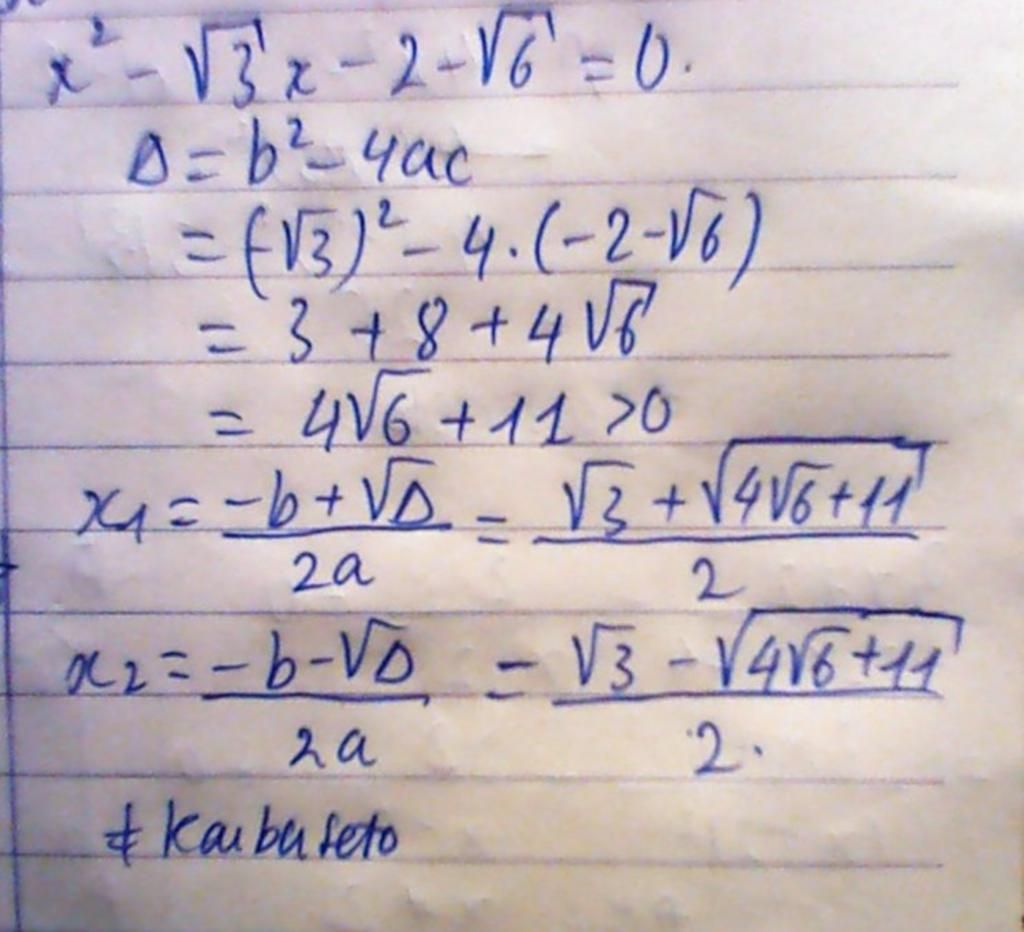 x² - √3 x - 2 - √6 = 0.
Δ = b² - 4ac
= (-√3)² - 4.(-2-√6)
= 3 + 8 + 4√6
= 4√6 + 11 >0
x₁ = (-b + √Δ)/2a = (√3 + √(4√6+11))/2
x₂ = (-b - √Δ)/2a = (√3 - √(4√6+11))/2.